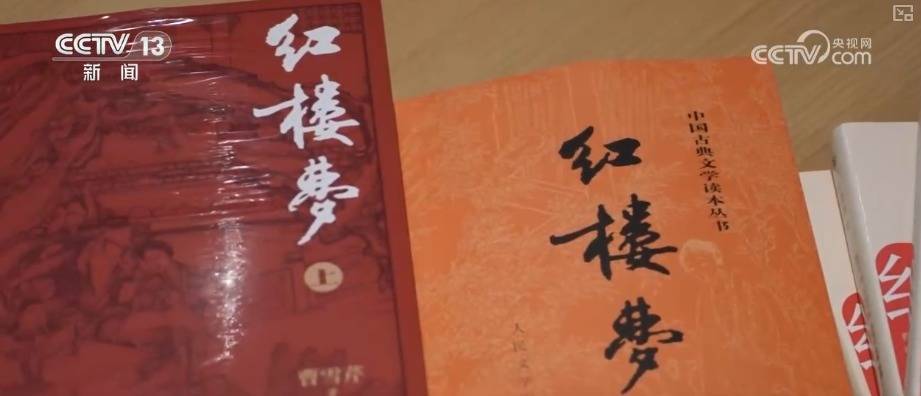 CCTV 13
新闻
CCTV 央视网
com
红楼梦
上
曹雪芹
中国古典文学读本丛书
红楼梦
人民文学